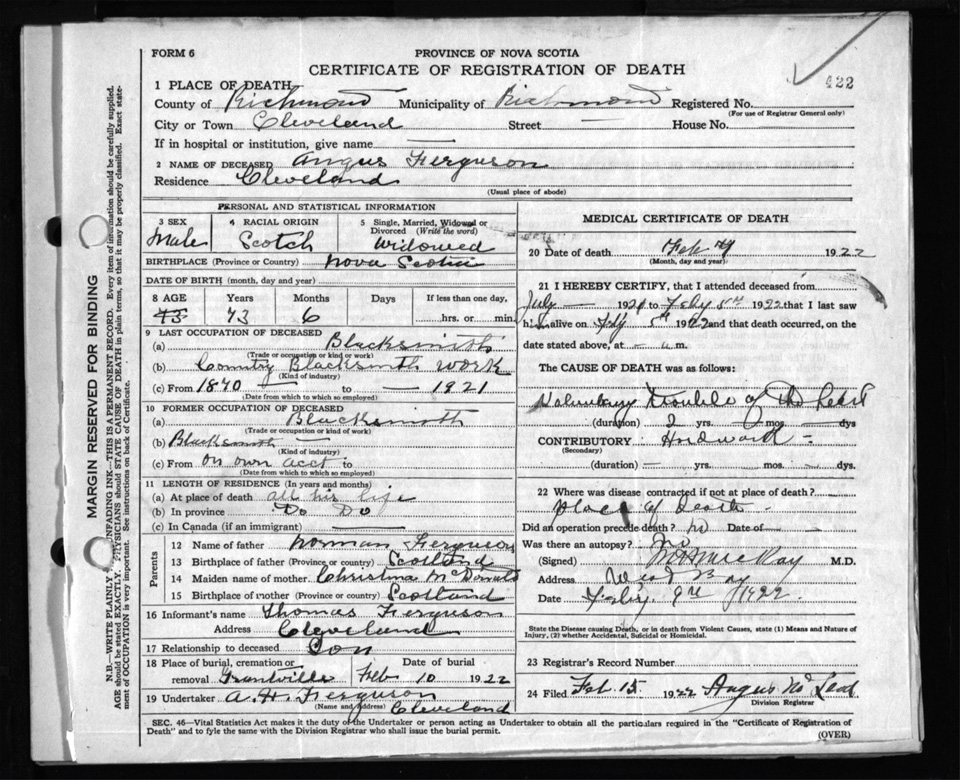 FORM 6
PROVINCE OF NOVA SCOTIA
CERTIFICATE OF REGISTRATION OF DEATH
422
1 PLACE OF DEATH
County of Richmond Municipality of Richmond Registered No.
(For use of Registrar General only)
City or Town Cleveland Street — House No.
If in hospital or institution, give name —
2 NAME OF DECEASED Angus Ferguson
Residence Cleveland
(Usual place of abode)
PERSONAL AND STATISTICAL INFORMATION
3 SEX Male
4 RACIAL ORIGIN Scotch
5 Single, Married, Widowed or Divorced (Write the word) Widowed
BIRTHPLACE (Province or Country) Nova Scotia
DATE OF BIRTH (month, day and year)
8 AGE Years Months Days If less than one day,
73 73 6 hrs. or min.
9 LAST OCCUPATION OF DECEASED
(a) Blacksmith
(Trade or occupation or kind of work)
(b) Country Blacksmith work
(Kind of industry)
(c) From 1840 to — 1921
(Date from which to which so employed)
10 FORMER OCCUPATION OF DECEASED
(a) Blacksmith
(Trade or occupation or kind of work)
(b) Blacksmith —
(Kind of industry)
(c) From on own acct to
(Date from which to which so employed)
11 LENGTH OF RESIDENCE (In years and months)
(a) At place of death all his life
(b) In province Do Do
(c) In Canada (if an immigrant) —
Parents
12 Name of father Norman Ferguson
13 Birthplace of father (Province or Country) Scotland
14 Maiden name of mother Christina McDonald
15 Birthplace of mother (Province or Country) Scotland
16 Informant's name Thomas Ferguson
Address Cleveland
17 Relationship to deceased Son
18 Place of burial, cremation or removal Grantville Date of burial Feb 10 1922
19 Undertaker A. H. Ferguson
(Name and address) Cleveland
MEDICAL CERTIFICATE OF DEATH
20 Date of death Feb 1922
(Month, day and year)
21 I HEREBY CERTIFY, that I attended deceased from
July — 1920 to Feby 5th 1922 that I last saw
h alive on Feby 5th 1922 and that death occurred, on the
date stated above, at — a.m.
The CAUSE OF DEATH was as follows:
trouble of the heart
(duration) 2 yrs. — mos. — dys
CONTRIBUTORY Hard work —
(Secondary)
(duration) — yrs. mos. — dys.
22 Where was disease contracted if not at place of death?
place of death -
Did an operation precede death? no Date of -
Was there an autopsy? no
(Signed) McKay M.D.
Address West Bay
Date Feby 9th 1922
State the Disease causing Death, or in death from Violent Causes, state (1) Means and Nature of
Injury, (2) whether Accidental, Suicidal or Homicidal.
23 Registrar's Record Number
24 Filed Feb. 15. 1922 Angus McLeod
Division Registrar
SEC. 46—Vital Statistics Act makes it the duty of the Undertaker or person acting as Undertaker to obtain all the particulars required in the "Certificate of Registration of
Death" and to fyle the same with the Division Registrar who shall issue the burial permit.
(OVER)
MARGIN RESERVED FOR BINDING
N.B.—WRITE PLAINLY UNFADING INK—THIS IS A PERMANENT RECORD. Every item of information should be carefully supplied.
AGE should be stated EXACTLY. PHYSICIANS should STATE CAUSE OF DEATH in plain terms, so that it may be properly classified. Exact state-
ment of OCCUPATION is very important. See instructions on back of Certificate.